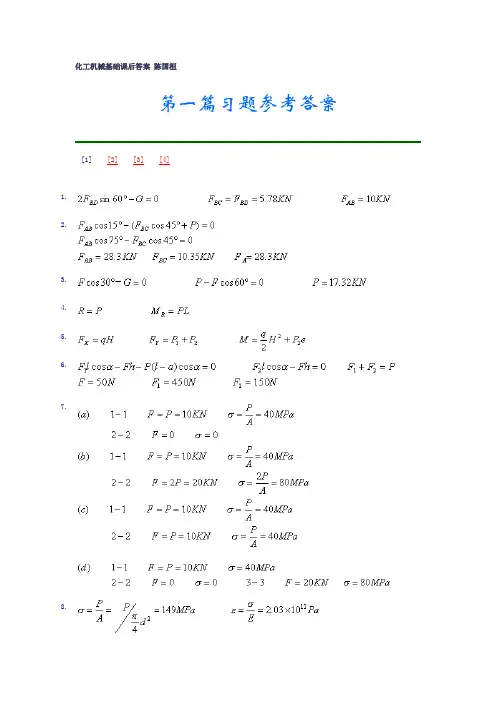 化工机械基础课后答案 陈国桓
第一篇习题参考答案
[1] [2] [3] [4]
1. 2F_{BD} sin 60° − G = 0 F_{BC} = F_{BD} = 5.78KN F_{AB} = 10KN
2. F_{AB} cos15° − (F_{BC} cos 45° + P) = 0
F_{AB} cos 75° − F_{BC} cos 45° = 0
F_{AB} = 28.3KN F_{BC} = 10.35KN F_A = 28.3KN
3. F cos30° − G = 0 P − F cos 60° = 0 P = 17.32KN
4. R = P M_R = PL
5. F_X = qH F_Y = P_1 + P_2 M = \frac{q}{2} H^2 + P_2 e
6. F_1 l cosα − Fh − P(l − a) cosα = 0 F_2 l cosα − Fh = 0 F_1 + F_2 = P
F = 50N F_1 = 450N F_2 = 150N
7. (a) 1−1 F = P = 10KN σ = \frac{P}{A} = 40MPa
2−2 F = 0 σ = 0
(b) 1−1 F = P = 10KN σ = \frac{P}{A} = 40MPa
2−2 F = 2P = 20KN σ = \frac{2P}{A} = 80MPa
(c) 1−1 F = P = 10KN σ = \frac{P}{A} = 40MPa
2−2 F = P = 10KN σ = \frac{P}{A} = 40MPa
(d) 1−1 F = P = 10KN σ = 40MPa
2−2 F = 0 σ = 0 3−3 F = 20KN σ = 80MPa
8. σ = \frac{P}{A} = P/\frac{π}{4}d^2 = 149MPa ε = \frac{σ}{E} = 2.03×10^{11} Pa